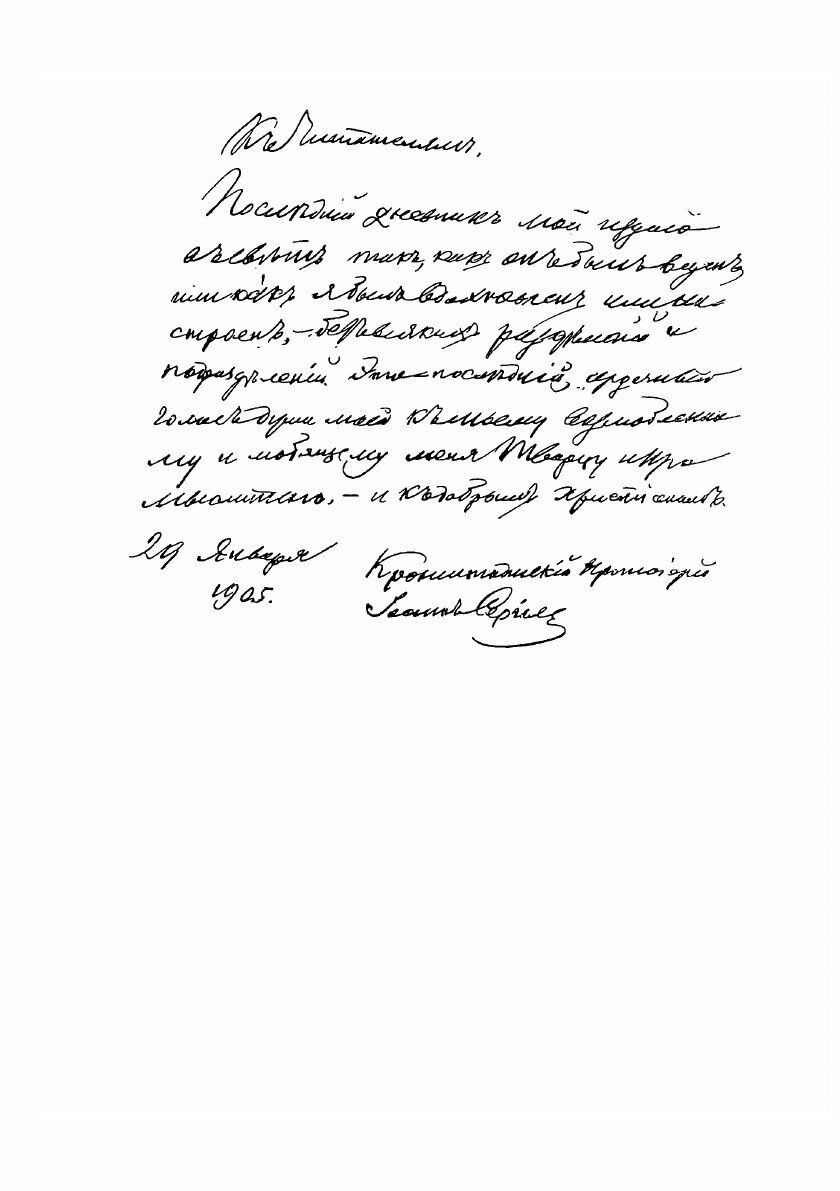 Къ Читателямъ.
Послѣдній дневникъ мой издаю
въ свѣтъ такъ, какъ онъ былъ веденъ,
или какъ я былъ вдохновленъ или на-
строенъ, – безъ всякихъ раздѣленій и
подраздѣленій. Это – послѣдній, сердечный
голосъ души моей къ моему возлюбленно
му и любящему меня Творцу и Про
мыслителю, – и къ добрымъ христіанамъ.
29 Января
1905.
Кронштадтскій Протоіерей
Іоаннъ Сергіевъ